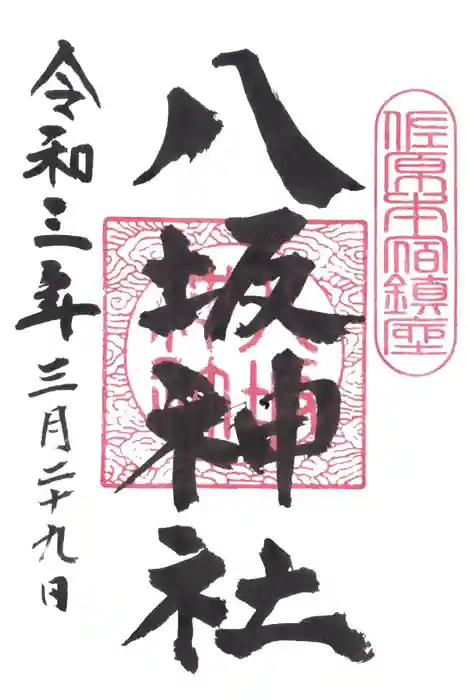 佐原本宿鎮座
八坂神社
令和三年三月二十九日